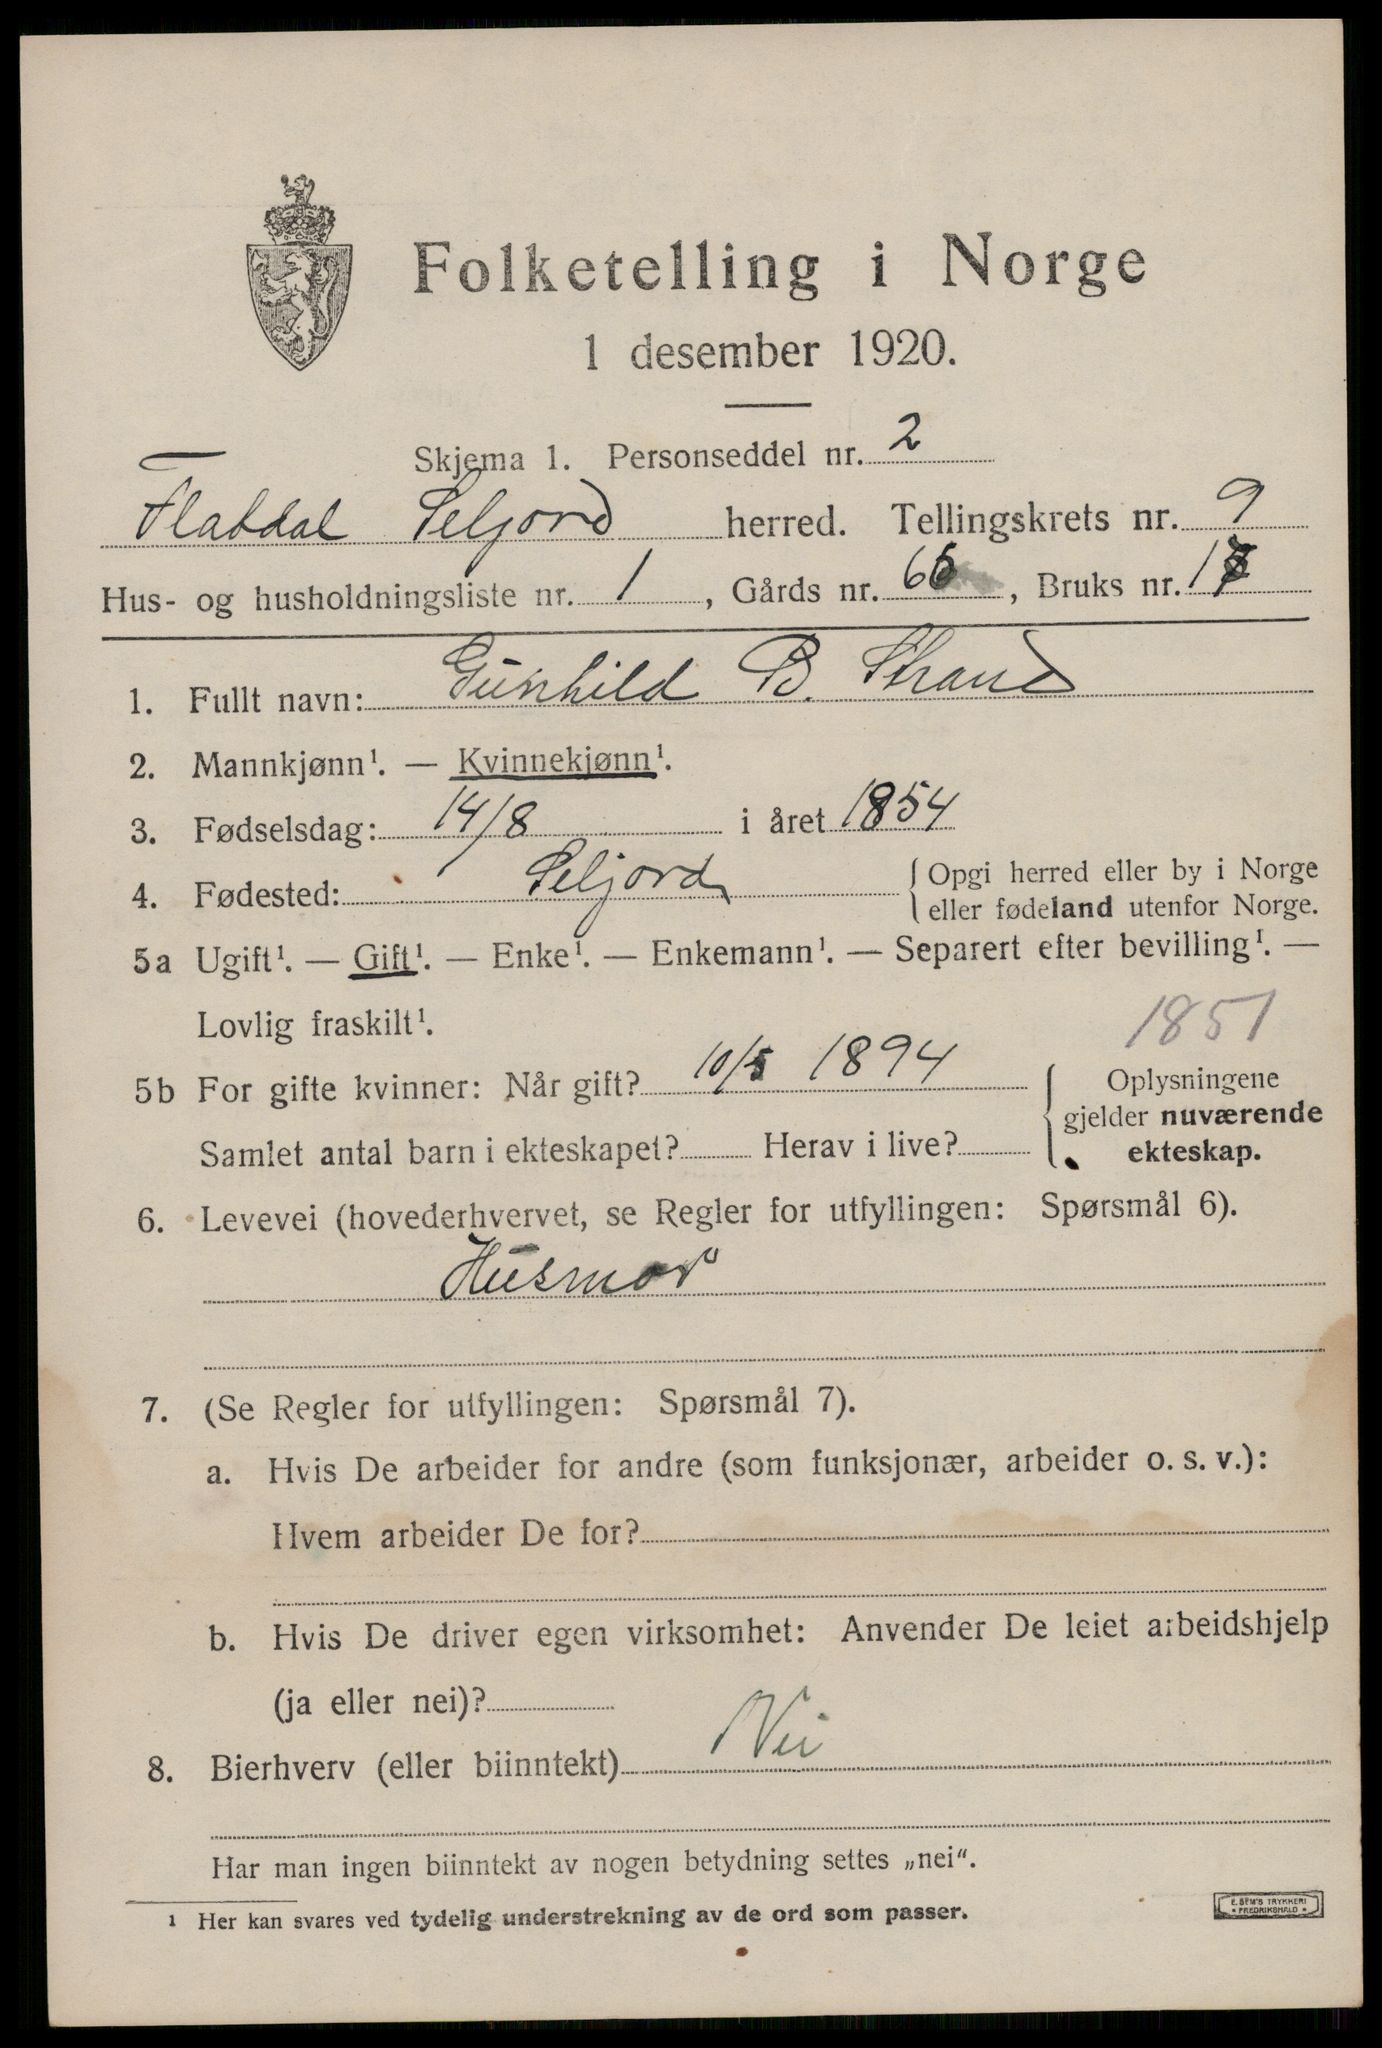 Folketelling i Norge
1 desember 1920.
Skjema 1. Personseddel nr. 2
Flatdal Seljord herred. Tellingskrets nr. 9
Hus- og husholdningsliste nr. 1, Gårds nr. 66, Bruks nr.
1. Fullt navn: Gunhild B. Strand
2. Mannkjønn¹. — Kvinnekjønn¹.
3. Fødselsdag: 14/8 i året 1854
4. Fødested: Seljord { Opgi herred eller by i Norge
eller fødeland utenfor Norge.
5a Ugift¹. — Gift¹. — Enke¹. — Enkemann¹. — Separert efter bevilling¹. —
Lovlig fraskilt¹.
1851
5b For gifte kvinner: Når gift? 10/5 1894 { Oplysningene
gjelder nuværende
Samlet antal barn i ekteskapet? Herav i live? ekteskap.
6. Levevei (hovederhvervet, se Regler for utfyllingen: Spørsmål 6).
Husmor
7. (Se Regler for utfyllingen: Spørsmål 7).
a. Hvis De arbeider for andre (som funksjonær, arbeider o. s. v.):
Hvem arbeider De for?
b. Hvis De driver egen virksomhet: Anvender De leiet arbeidshjelp
(ja eller nei)?
8. Bierhverv (eller biinntekt) Nei
Har man ingen biinntekt av nogen betydning settes „nei".
¹ Her kan svares ved tydelig understrekning av de ord som passer.
E. SEM'S TRYKKERI
* FREDRIKSHALD *